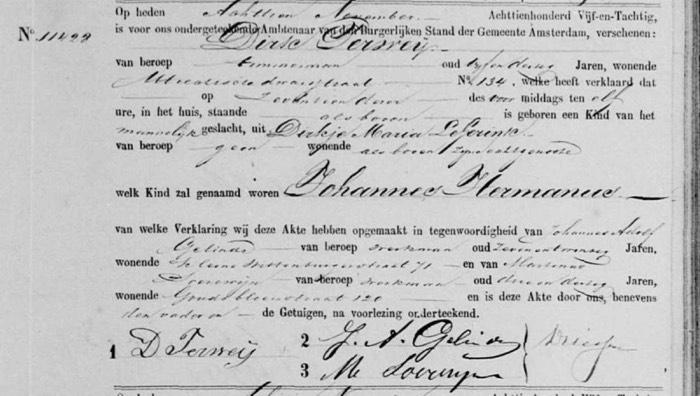 Op heden Achttien November Achttienhonderd Vijf-en-Tachtig,
No. 11422 is voor ons ondergeteekende Ambtenaar van den Burgerlijken Stand der Gemeente Amsterdam, verschenen:
Dirk Terweij
van beroep timmerman oud Jaren, wonende
dwarsstraat No. 134. welke heeft verklaard dat
op Zeventien dezer des voor middags ten elf
ure, in het huis, staande als boven is geboren een Kind van het
mannelijk geslacht, uit Dirkje Maria Leferink
van beroep geen wonende als boven zijne echtgenoote
welk Kind zal genaamd woren Johannes Hermanus
van welke Verklaring wij deze Akte hebben opgemaakt in tegenwoordigheid van Johannes Adolf
Gelinde van beroep werkman oud Zevenentwintig Jaren,
wonende Kleine Wittenburgerstraat 71 en van Marinus
van beroep werkman oud drie en dertig Jaren,
wonende straat 120 en is deze Akte door ons, benevens
den vader en de Getuigen, na voorlezing onderteekend.
1 D Terweij 2 J. A. Gelinde
3 M
Achttienhonderd Vijf-en-Tachtig